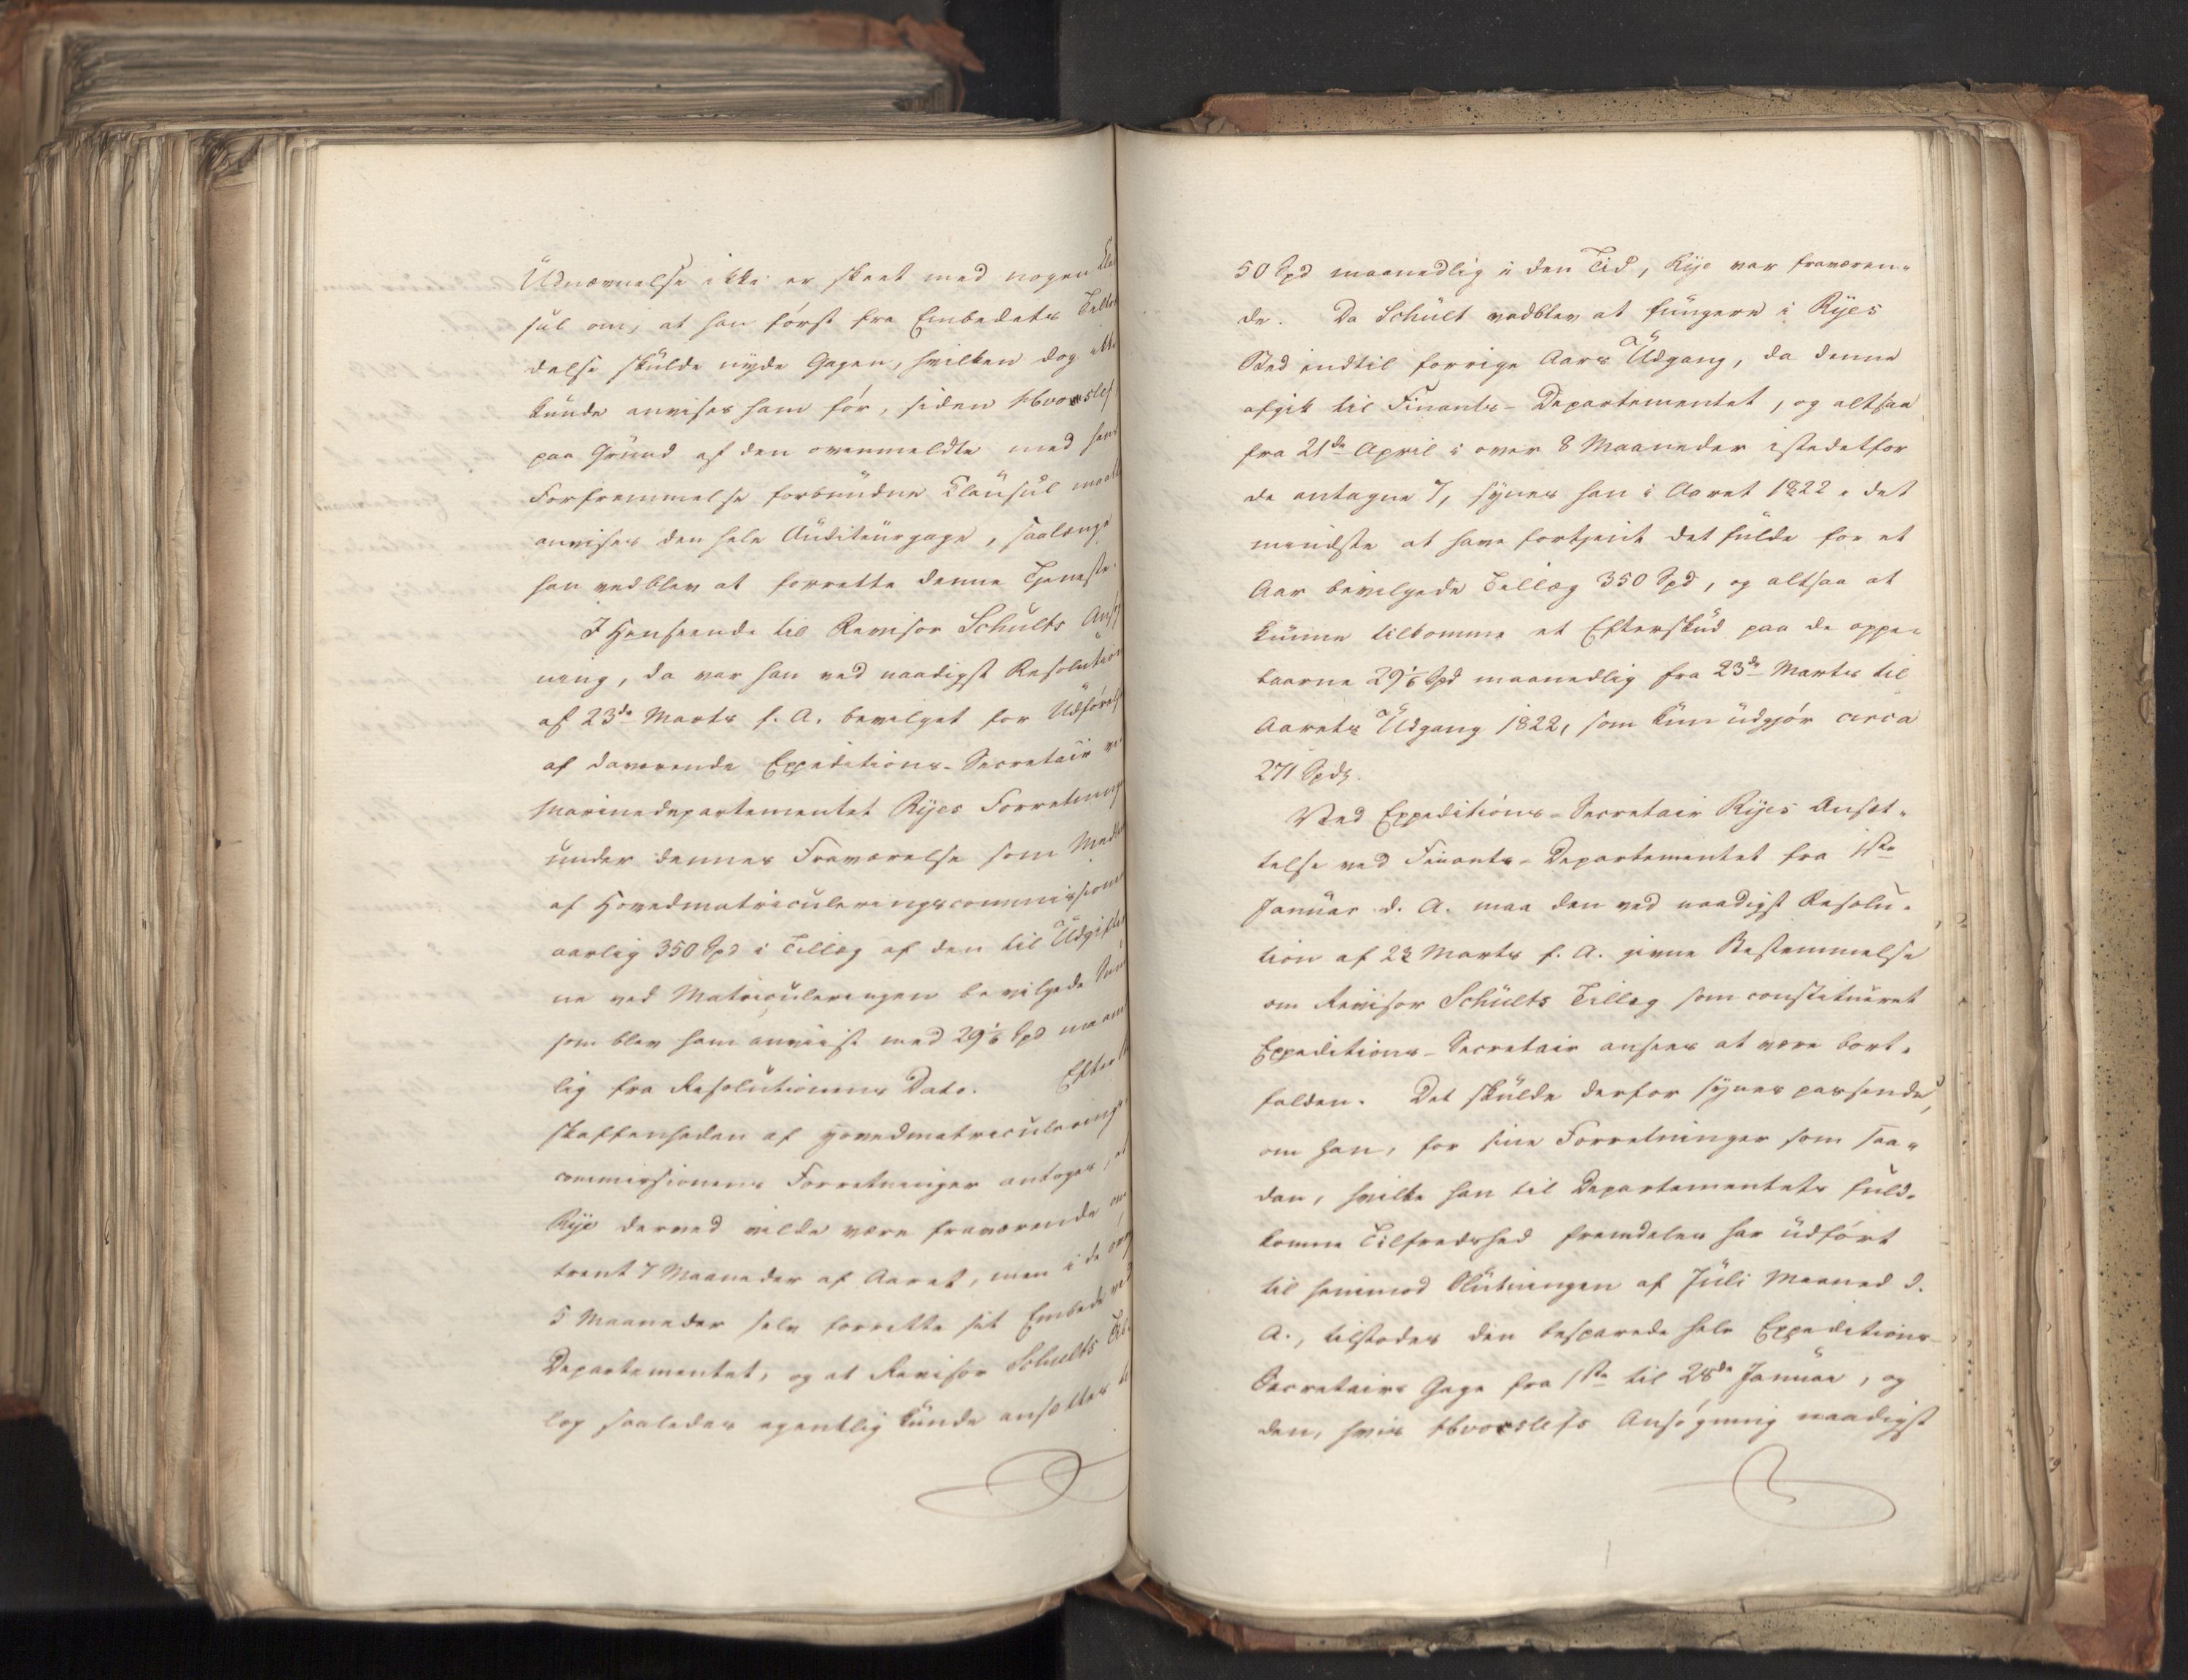 Udnævnelse ikke er skeet med nogen Clau
sul om, at han først fra Embedets Tiltræ
delse skulde nyde Gagen, hvilken dog ikke
kunde anvises ham før, siden Hvorslef
paa Grund af den ovenmeldte med hans
Forfremmelse forbundne Clausul maatte
anvises den hele Auditeurgage, saalænge
han vedblev at forrette denne Tjeneste.
I Henseende til Revisor Schults Ansøg
ning, da var han ved naadigst Resolution
af 23de Marts f. A. bevilget for Udførels
af daværende Expeditions-Secretair ved
Marinedepartementet Ryes Forretning
under dennes Fraværelse som Medl
af Hovedmatriculeringscommissionen
aarlig 350 Spd i Tillæg af den til Udgifter
ne ved Matriculeringen bevilgede Sum
som blev ham anviist med 29 1/6 Spd maaned
lig fra Resolutionens Dato. Efter
skaffenheden af Hovedmatriculerings
commissionens Forretninger antoges, at
Rye derved vilde være fraværende om
trent 7 Maaneder af Aaret, men i de øvr
5 Maaneder selv forrette sit Embede ved
Departementet, og at Revisor Schults Til
læg saaledes egentlig kunde ansættes til
50 Spd maanedlig i den Tid, Rye var fraværen-
de. Da Schult vedblev at fungere i Ryes
Sted indtil forrige Aars Udgang, da denne
afgik til Finants-Departementet, og altsaa
fra 21de April i over 8 Maaneder istedetfor
de antagne 7, synes han i Aaret 1822 i det
mindste at have fortjent det fulde for et
Aar bevilgede Tillæg 350 Spd, og altsaa at
kunne tilkomme et Efterskud paa de oppe-
baarne 29 1/6 Spd maanedlig fra 23de Marts til
Aarets Udgang 1822, som kun udgjør circa
271 Spd.
Ved Expeditions-Secretair Ryes Ansæt-
telse ved Finants-Departementet fra 1ste
Januar d. A. maa den ved naadigst Resolu-
tion af 23 Marts f. A. givne Bestemmelse
om Revisor Schults Tillæg som constitueret
Expeditions-Secretair ansees at være bort-
falden. Det skulde derfor synes passende,
om han, for sine Forretninger som saa-
dan, hvilke han til Departementets fuld-
komne Tilfredshed fremdeles har udført
til henimod Slutningen af Juli Maaned d.
A., tilstodes den besparede hele Expeditions-
Secretairs Gage fra 1ste til 28de Januar, og
den, hvis Hvorslefs Ansøgning naadigst